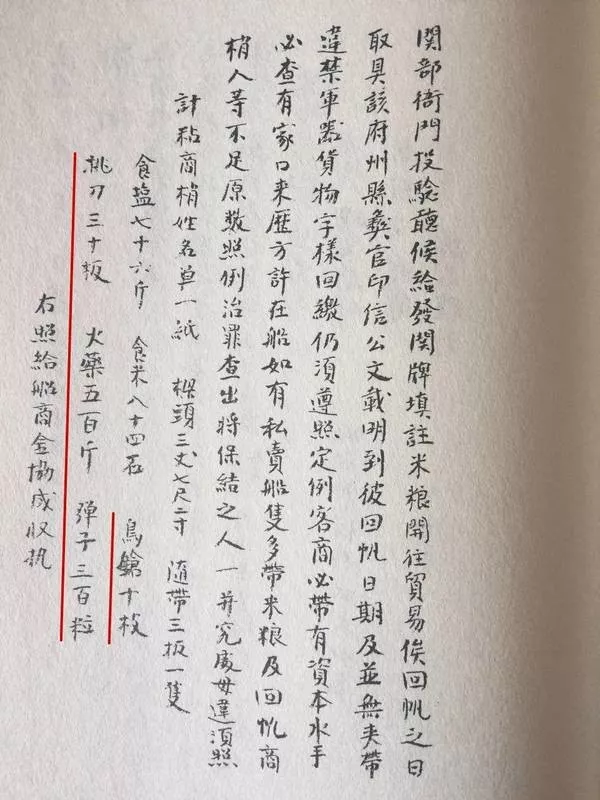 関部衙門投驗聽候給發関牌填註米粮開往貿易俟回帆之日
取具該府州縣彝官印信公文載明到彼回帆日期及並無夹帶
違禁軍器貨物字樣回繳仍須遵照定例客商必帶有資本水手
必查有家口来歷方許在船如有私賣船隻多帶米粮及回帆商
梢人等不足原数照例治罪查出将保结之人一并究處毋違須照
計粘商梢姓名单一紙 樑頭三丈七尺二寸 隨帶三板一隻
食塩七十六斤 食米八十四石 鳥鎗十枝
挑刀三十板 火藥五百斤 弹子三百粒
右照給船商金協成收执